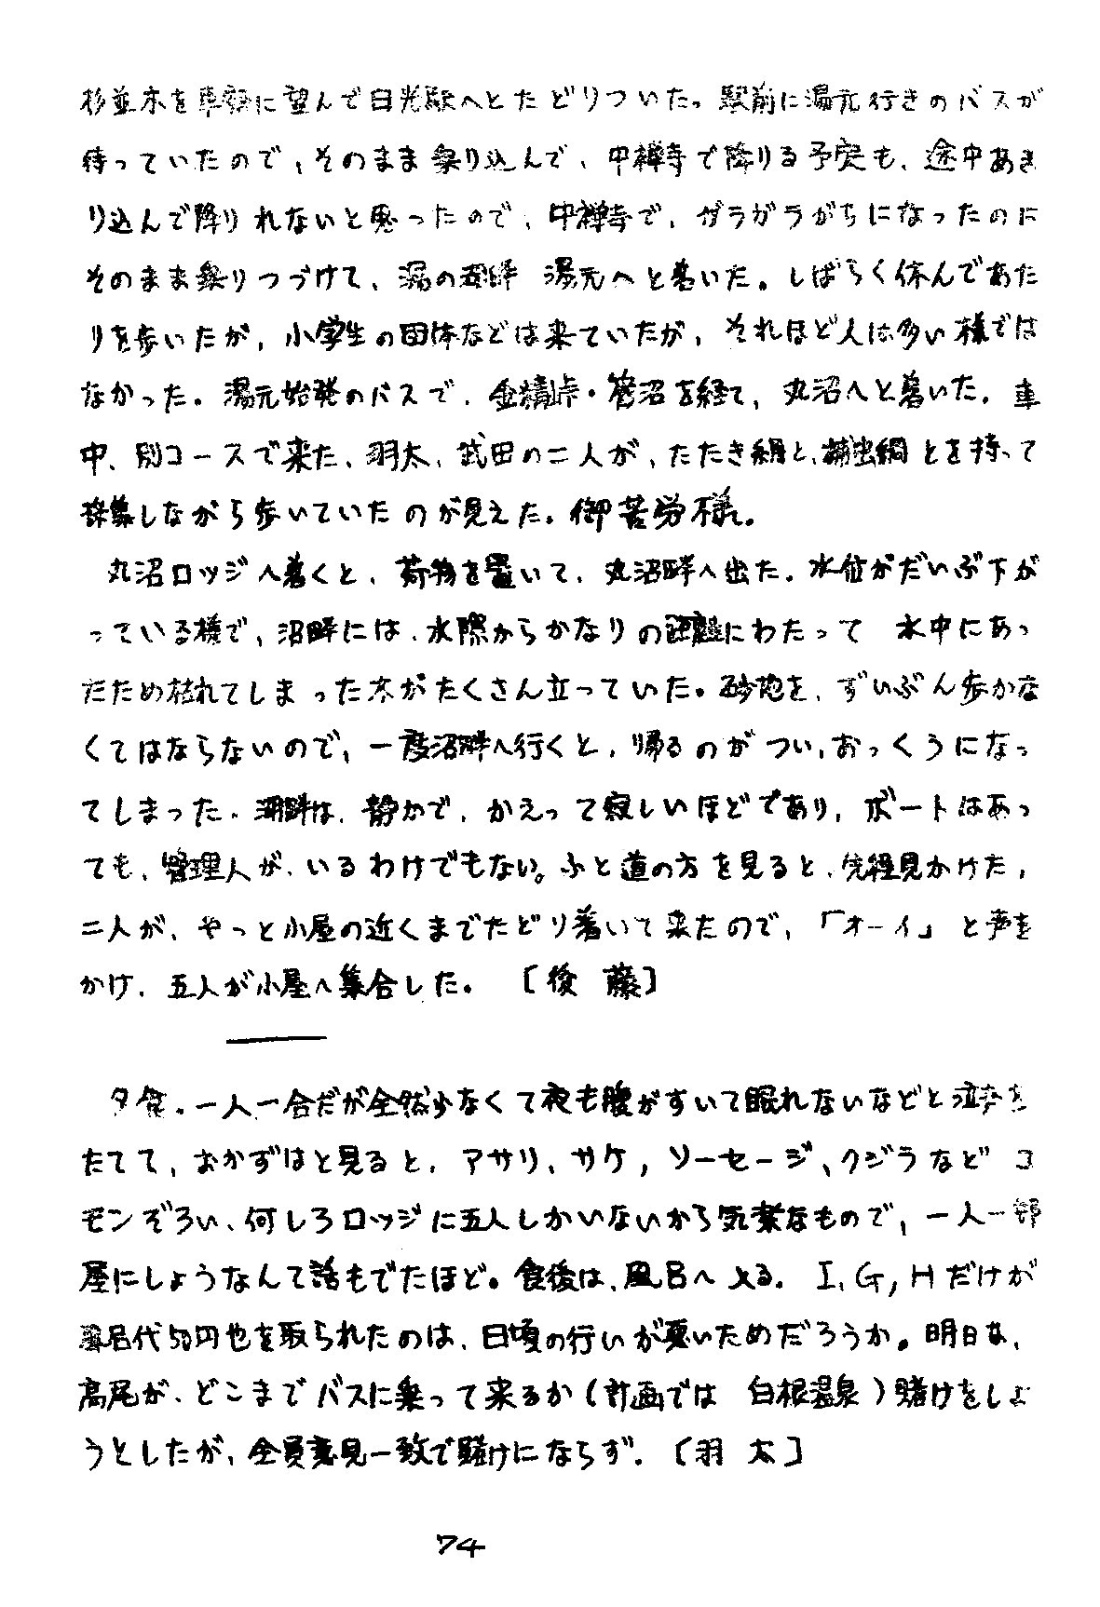 杉並木を車窓に望んで日光駅へとたどりついた。駅前に湯元行きのバスが
待っていたので、そのまま乗り込んで、中禅寺で降りる予定も、途中あま
り込んで降りれないと思ったので、中禅寺で、ガラガラがちになったのに
そのまま乗りつづけて、湯の湖畔 湯元へと着いた。しばらく休んであた
りを歩いたが、小学生の団体などは来ていたが、それほど人は多い様では
なかった。湯元始発のバスで、金精峠・菅沼を経て、丸沼へと着いた。車
中、別コースで来た、羽太、武田の二人が、たたき網と、捕虫網とを持って
採集しながら歩いていたのが見えた。御苦労様。
丸沼ロッジへ着くと、荷物を置いて、丸沼畔へ出た。水位がだいぶ下が
っている様で、沼畔には、水際からかなりの距離にわたって 水中にあっ
たため枯れてしまった木がたくさん立っていた。砂地を、ずいぶん歩かな
くてはならないので、一度沼畔へ行くと、帰るのがつい、おっくうになっ
てしまった。湖畔は、静かで、かえって寂しいほどであり、ボートはあっ
ても、管理人が、いるわけでもない。ふと道の方を見ると、先程見かけた、
二人が、やっと小屋の近くまでたどり着いて来たので、「オーイ」と声を
かけ、五人が小屋へ集合した。 〔後 藤〕
夕食。一人一合だが全然少なくて夜も腹がすいて眠れないなどと泣き
たてて、おかずはと見ると、アサリ、サケ、ソーセージ、クジラなど コ
モンぞろい、何しろロッジに五人しかいないから気楽なもので、一人一部
屋にしようなんて話もでたほど。食後は、風呂へ入る。I、G、Hだけが
風呂代50円也を取られたのは、日頃の行いが悪いためだろうか。明日は、
高尾が、どこまでバスに乗って来るか(計画では 白根温泉)賭けをしよ
うとしたが、全員意見一致で賭けにならず。〔羽 太〕
74